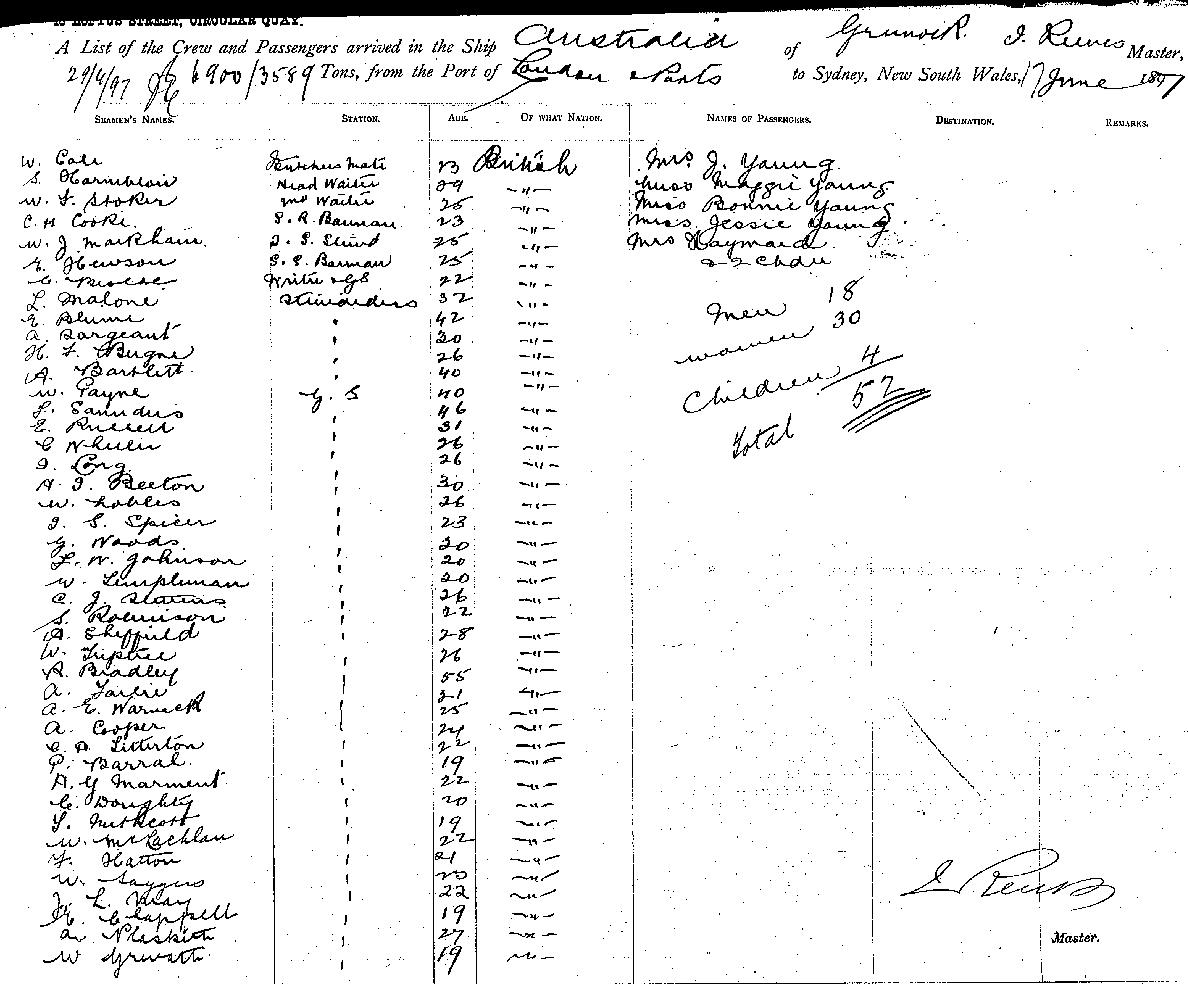 LOFTUS STREET, CIRCULAR QUAY.
A List of the Crew and Passengers arrived in the Ship Australia of Greenock J. Reeves Master,
29/4/97 6900/3589 Tons, from the Port of London & Ports to Sydney, New South Wales, 17 June 1897
SEAMEN'S NAMES. STATION. AGE. OF WHAT NATION. NAMES OF PASSENGERS. DESTINATION. REMARKS.
W. Cole Butchers Mate 23 British Mrs J. Young
S. Head Waiter 29 -"- Miss Maggie Young
W. F. Stoker Waiter 25 -"- Miss Bonnie Young
C. H. Cooke S. R. Barman 23 -"- Miss Jessie Young
W. J. Markham 25 -"- Mrs Haymard
E. Hewson S. S. Barman 25 -"-
Writer & GS 22 -"-
L. Malone Stewardess 32 -"- Men 18
E. Blume " 42 -"- Women 30
A. Sargeant " 30 -"-
H. F. " 26 -"- Children 4
A. Bartlett " 40 -"-
W. Payne G. S 40 -"- 52
F. Saunders " 46 -"- Total
E. Russell " 31 -"-
C Wheeler " 26 -"-
J. Long " 26 -"-
A. J. Beeton " 30 -"-
W. " 26 -"-
J. S. Spicer " 23 -"-
G. Woods " 20 -"-
F. W. Johnson " 20 -"-
W. Templeman " 20 -"-
C. J. " 26 -"-
S. Robinson " 22 -"-
A. Sheffield " 28 -"-
W. Triptree " 26 -"-
R. Bradley " 55 -"-
A. " 21 -"-
A. E. Warwick " 25 -"-
A. Cooper " 24 -"-
C. A. Litterton " 22 -"-
P. Barral " 19 -"-
A. G Marment " 22 -"-
C. Doughty " 20 -"-
" 19 -"-
W. McLachlan " 22 -"-
F. Hatton " 21 -"-
W. Saggers " 20 -"-
J. L. May " 22 -"- J Reeves
E. Clappell " 19 -"-
A. " 27 -"- Master.
W " 19 -"-